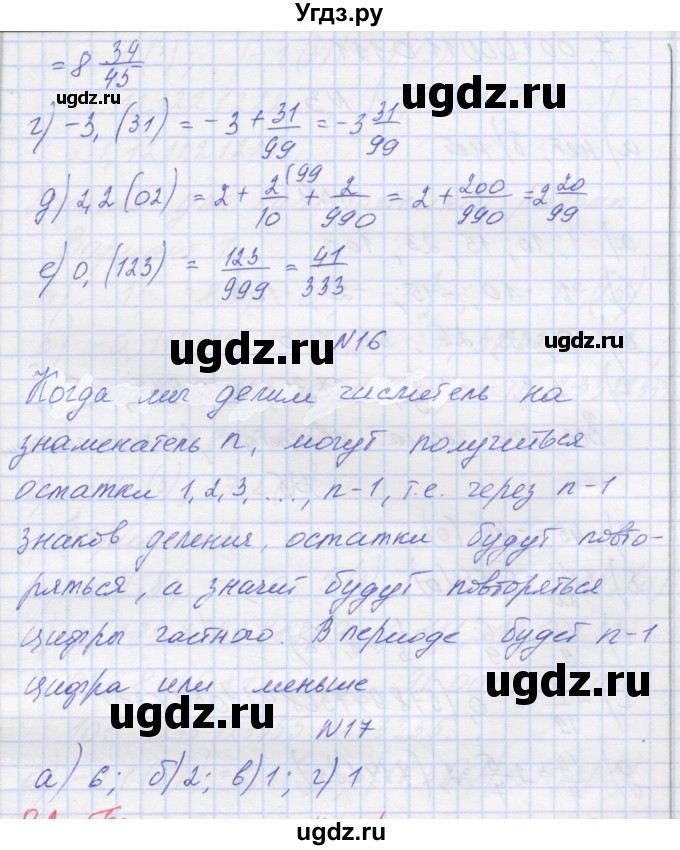 Угдз.ру
= 8 34/45
ugdz.ru ugdz.ru ugdz.ru
г) -3,(31) = -3 + 31/99 = -3 31/99
д) 2,2(02) = 2 + 2/10 (99 + 2/990 = 2 + 200/990 = 2 20/99
е) 0,(123) = 123/999 = 41/333
ugdz.ru N16 ugdz.ru
Когда мы делим числитель на
знаменатель n, могут получиться
остатки 1, 2, 3, ..., n-1, т.е. через n-1
знаков деления, остатки будут повто-
ряться, а значит будут повторяться
цифры частного. В периоде будет n-1
цифра или меньше
ugdz.ru ugdz.ru
N17
а) 6; б) 2; в) 1; г) 1
ugdz.ru ugdz.ru ugdz.ru